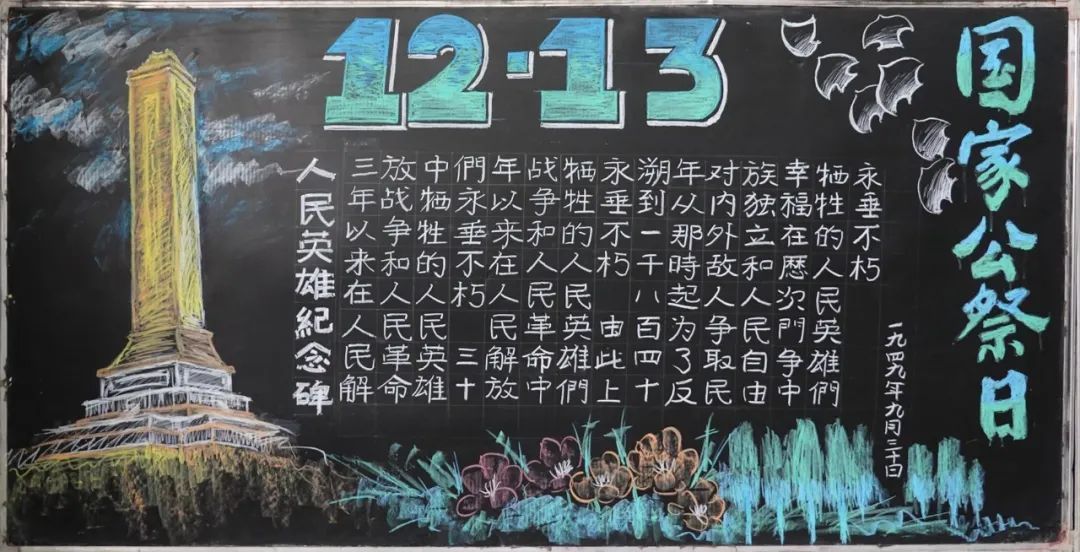 12·13
国家公祭日
人民英雄紀念碑
三年以来在人民解
放战争和人民革命
中牺牲的人民英雄
們永垂不朽 三十
年以来在人民解放
战争和人民革命中
牺牲的人民英雄們
永垂不朽 由此上
溯到一千八百四十
年从那時起为了反
对内外敌人争取民
族独立和人民自由
幸福在歴次門争中
牺牲的人民英雄們
永垂不朽
一九四九年九月三十日